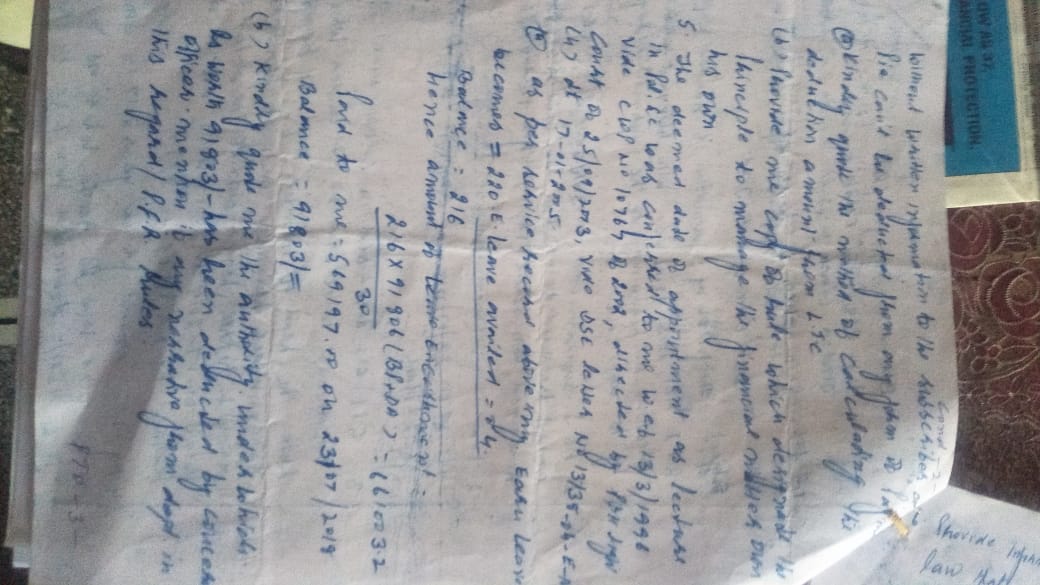 Contd-2-
without written information to the subscriber, an
Pie can't be deducted from any form of Pay
(a) Kindly quote the method of calculating this
deduction amount from LTC
(b) Provide me copy of rule which debarred the
Principle to manage the financial matters own
his own
5. The deemed date of appointment as lecturer
in Pol Sc was conferred to me w.e.f 13/3/1996
vide CWP No 10764 of 2002, directed by Pb & Hry
Court on 25/09/2003, vide DSE letter No 13/35-04-E-
(4) dt 17-01-2005
(a) as per service record above my Earn Leave
becomes = 220 E. leave availed = 04.
Balance = 216
Hence amount of leave encashment =
216 X 91806 (BP+DA) = 661003.2
30
Paid to me = 569197.00 on 23/07/2018
Balance = 91803/=
(b) Kindly quote me the authority under which
Rs worth 91803/- has been deducted by concerned
officer, mention if any instruction from deptt in
this regard / P.F.R Rules
PTO-3-
Provide
law
LOW AS 37,
FINANCIAL PROTECTION.